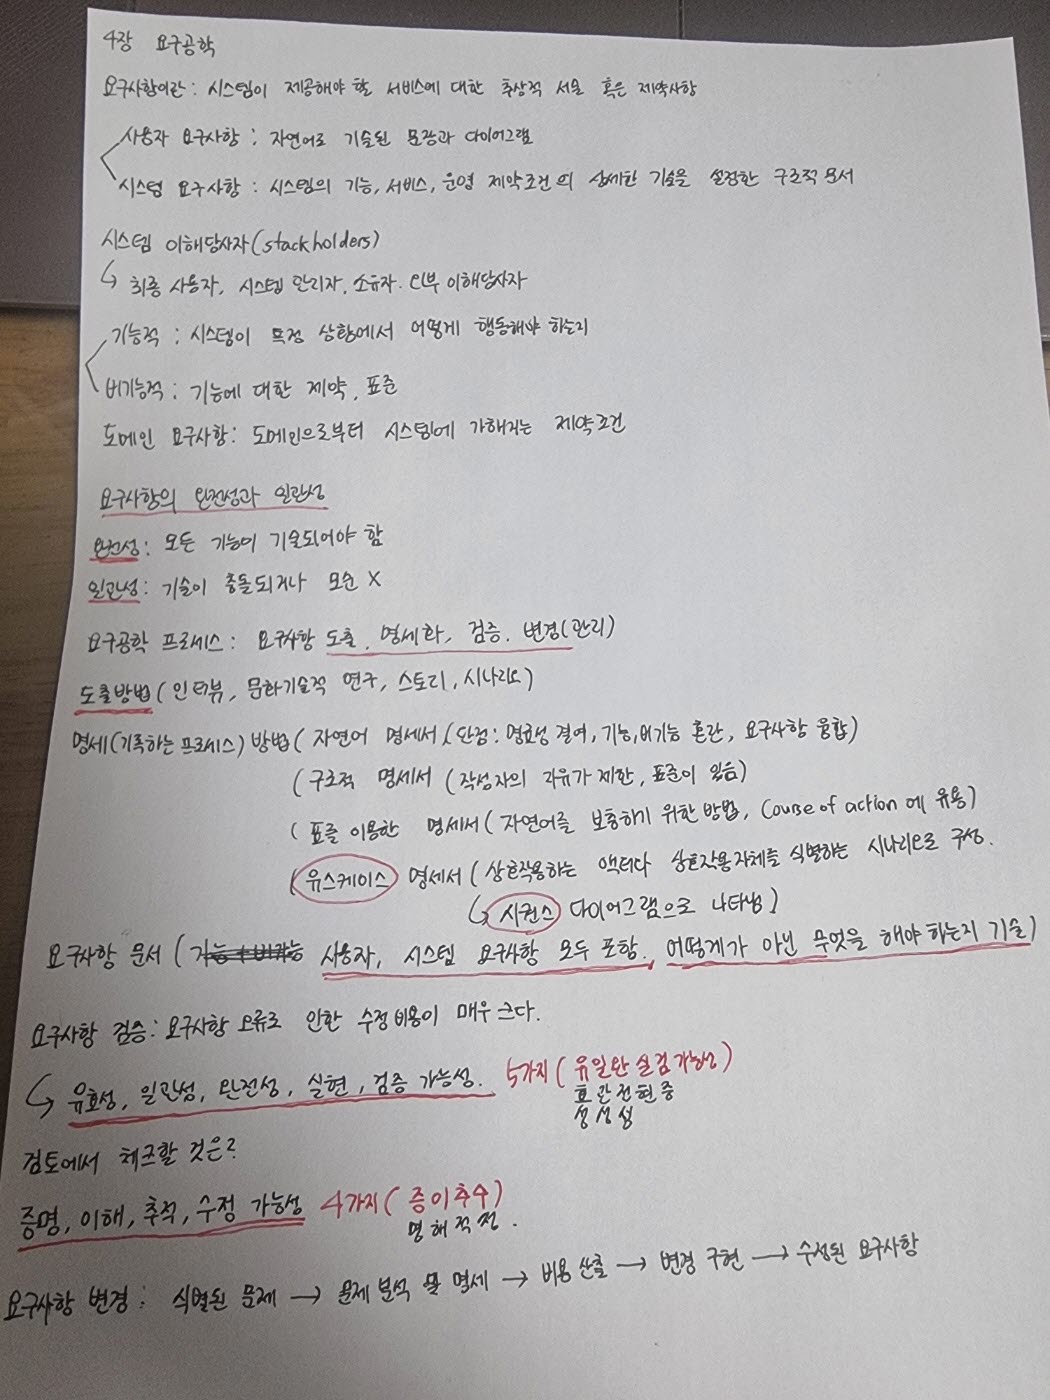 4장 요구공학
요구사항이란: 시스템이 제공해야 할 서비스에 대한 추상적 서술 혹은 제약사항
사용자 요구사항 : 자연어로 기술된 문장과 다이어그램
시스템 요구사항 : 시스템의 기능, 서비스, 운영 제약조건의 상세한 기술을 설정한 구조적 문서
시스템 이해당사자(stackholders)
↳ 최종 사용자, 시스템 관리자, 소유자. 외부 이해당사자
기능적 : 시스템이 특정 상황에서 어떻게 행동해야 하는지
비기능적 : 기능에 대한 제약, 표준
도메인 요구사항: 도메인으로부터 시스템에 가해지는 제약조건
요구사항의 완전성과 일관성
완전성: 모든 기능이 기술되어야 함
일관성: 기술이 충돌되거나 모순 X
요구공학 프로세스: 요구사항 도출, 명세화, 검증. 변경(관리)
도출방법(인터뷰, 문화기술적 연구, 스토리, 시나리오)
명세(기록하는 프로세스) 방법( 자연어 명세서 (단점: 명료성 결여, 기능,비기능 혼란, 요구사항 융합)
( 구조적 명세서 (작성자의 자유가 제한, 표준이 있음)
( 표를 이용한 명세서( 자연어를 보충하기 위한 방법, Course of action에 유용)
( 유스케이스 명세서 (상호작용하는 액터다 상호작용자체를 식별하는 시나리오로 구성.
↳ 시퀀스 다이어그램으로 나타냄)
요구사항 문서 ( 사용자, 시스템 요구사항 모두 포함, 어떻게가 아닌 무엇을 해야 하는지 기술)
요구사항 검증: 요구사항 오류로 인한 수정비용이 매우 크다.
↳ 유효성, 일관성, 완전성, 실현, 검증 가능성. 5가지( 유일완실검가능성)
효관전현증
성성성
검토에서 체크할 것은?
증명, 이해, 추적, 수정 가능성 4가지( 증이추수)
명해적정.
요구사항 변경: 식별된 문제 → 문제 분석 및 명세 → 비용 산출 → 변경 구현 → 수정된 요구사항